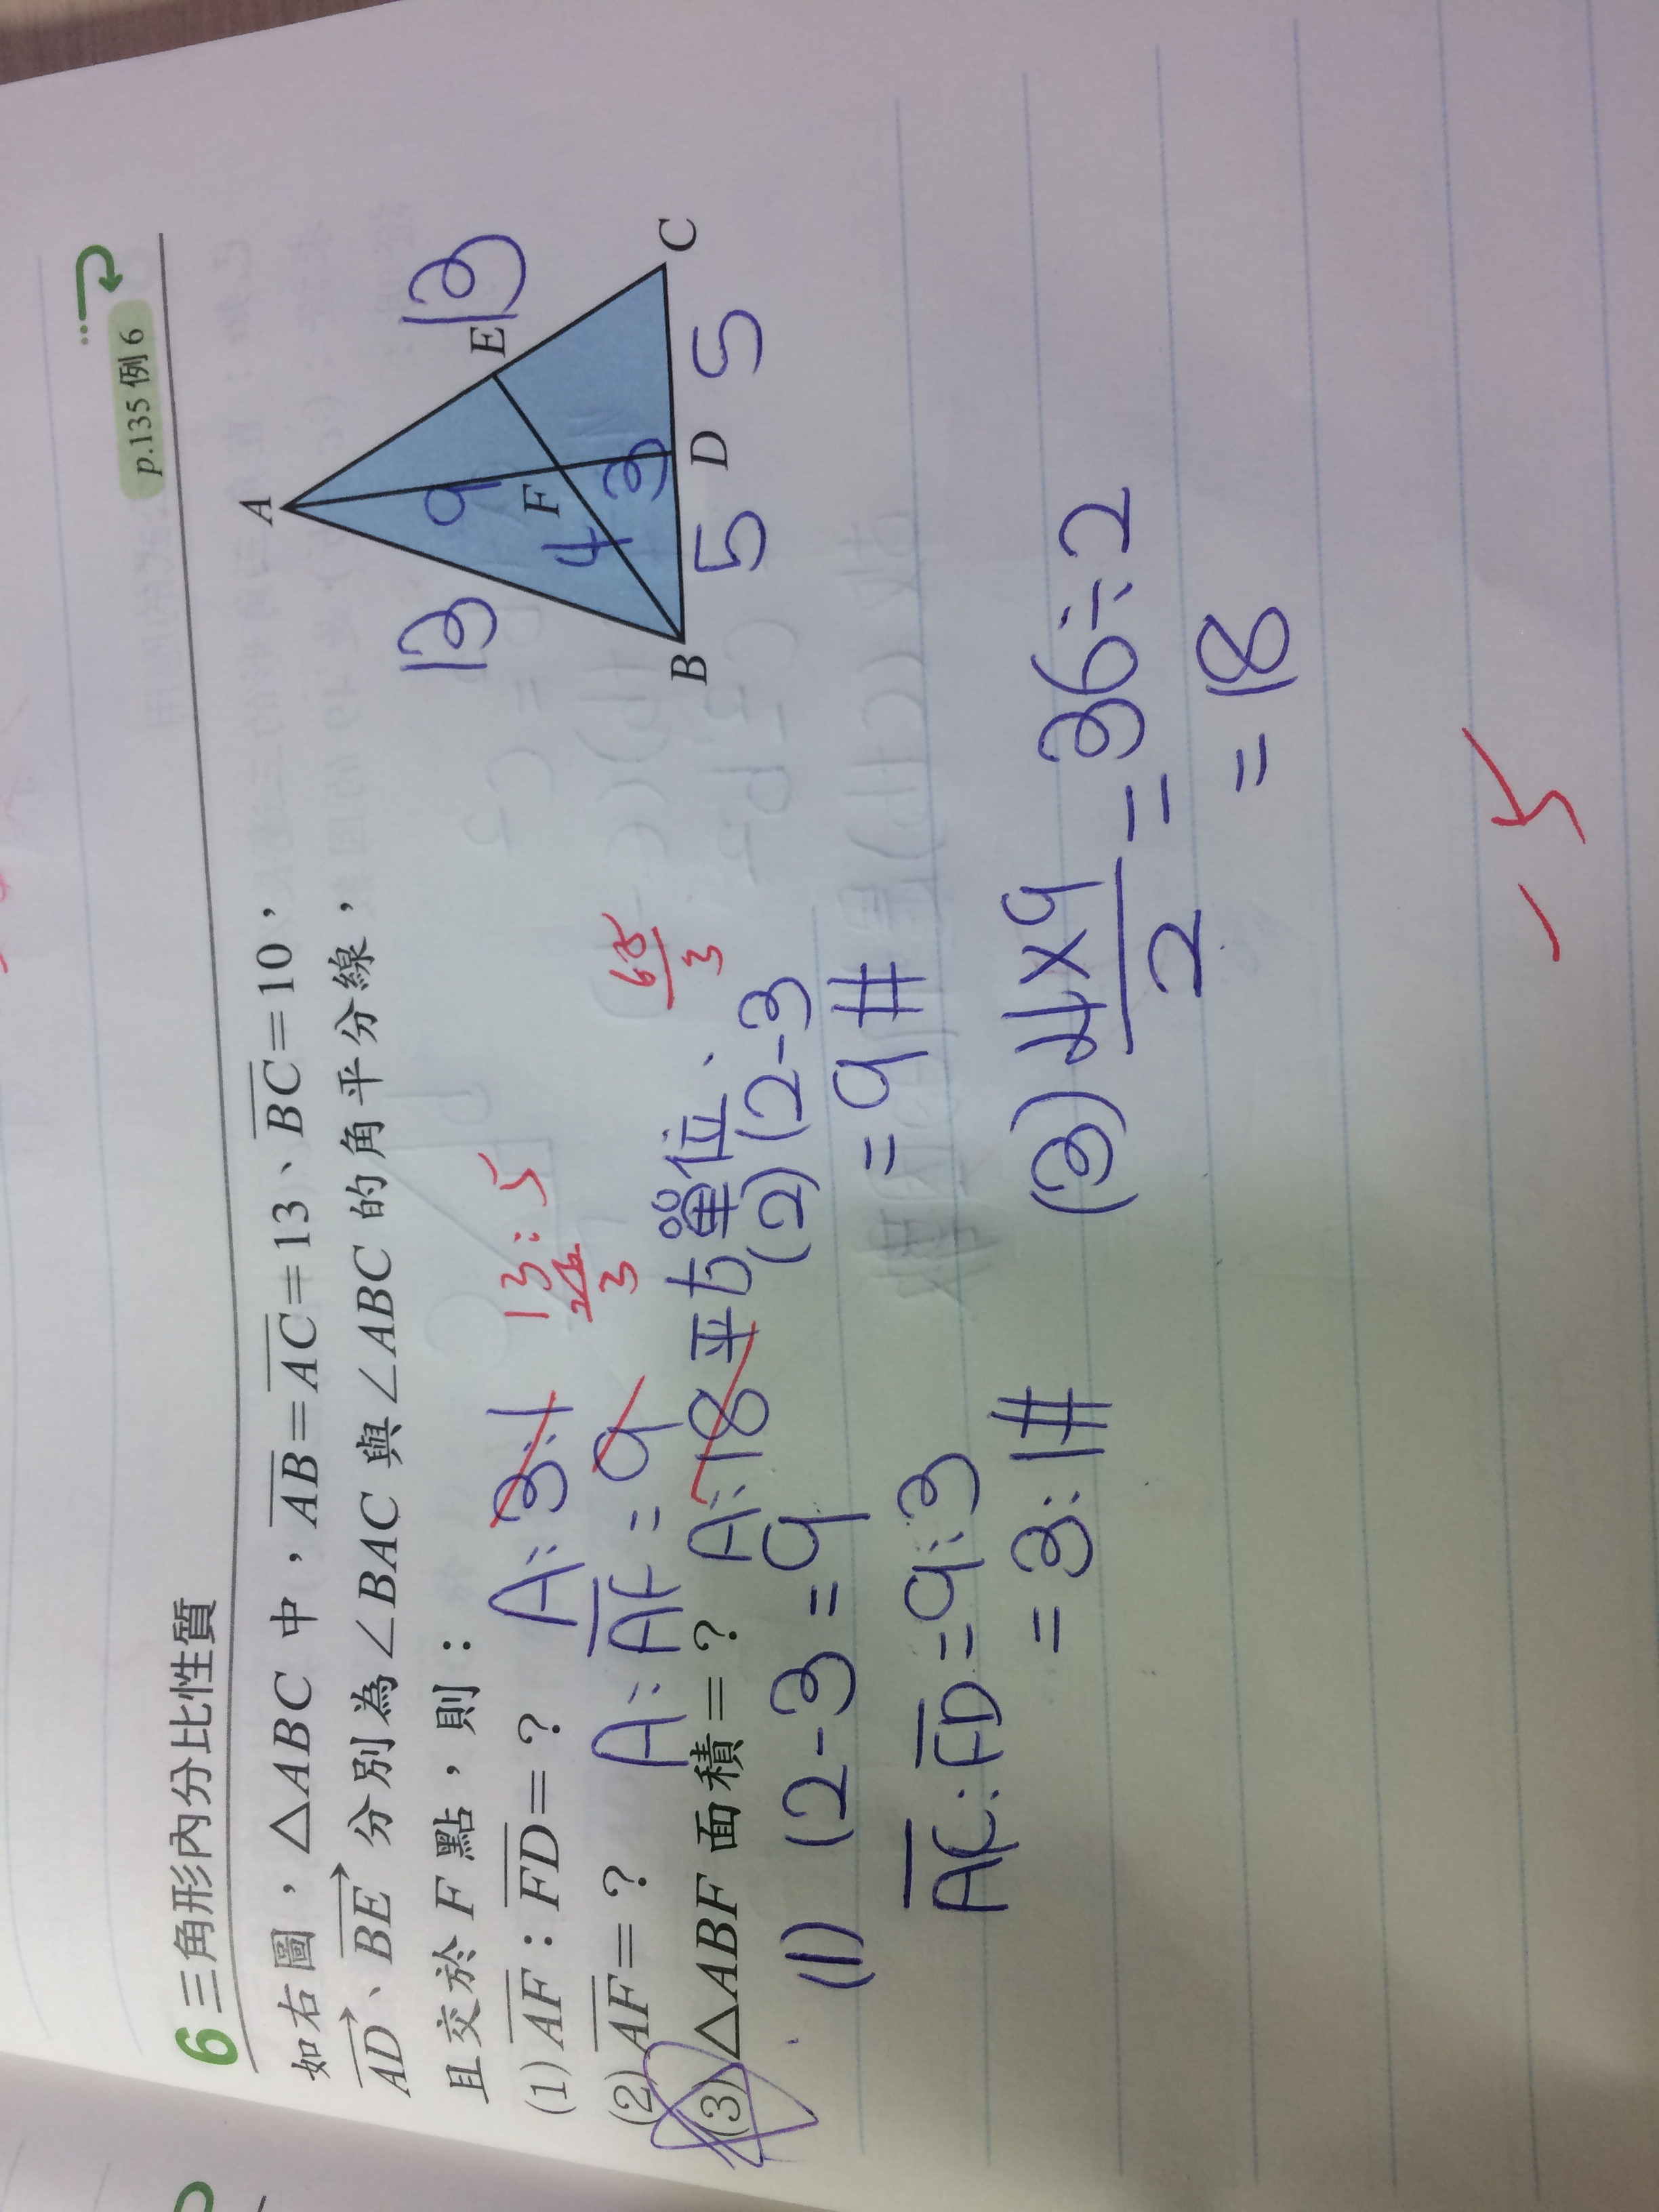 p.135 例 6
6 三角形內分比性質
如右圖，△ABC 中，AB=AC=13、BC=10，
AD、BE 分別為∠BAC 與∠ABC 的角平分線，
且交於 F 點，則：
(1) AF：FD=？ A: 3:1 13:5
(2) AF=？ A: AF=9 26/3
(3) △ABF 面積=？ A: 18 平方單位 65/3
A
B
C
D
E
F
13
13
9
4
3
5
5
(1) 12-3=9
AF:FD=9:3
=3:1#
(2) 12-3
=9#
(3) 4×9/2=36÷2
=18
-5